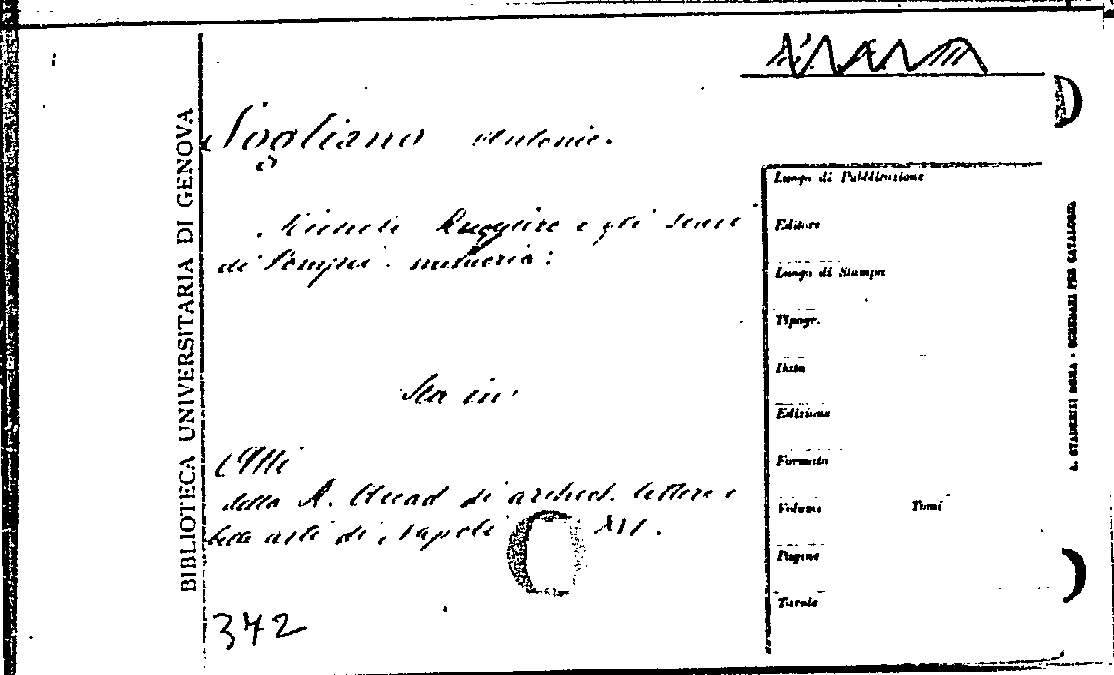 BIBLIOTECA UNIVERSITARIA DI GENOVA
Sogliano Antonio.
Michele Ruggiero e gli scavi
di Pompei. memoria:
Sta in:
Atti
della R. Accad di archeol. lettere e
belle arti di Napoli XVI.
342
Luogo di Pubblicazione
Editore
Luogo di Stampa
Tipogr.
Data
Edizione
Formato
Volume Tomi
Pagine
Tavole
A. STADERINI ROMA - SCHEDARI PER CATALOGHI